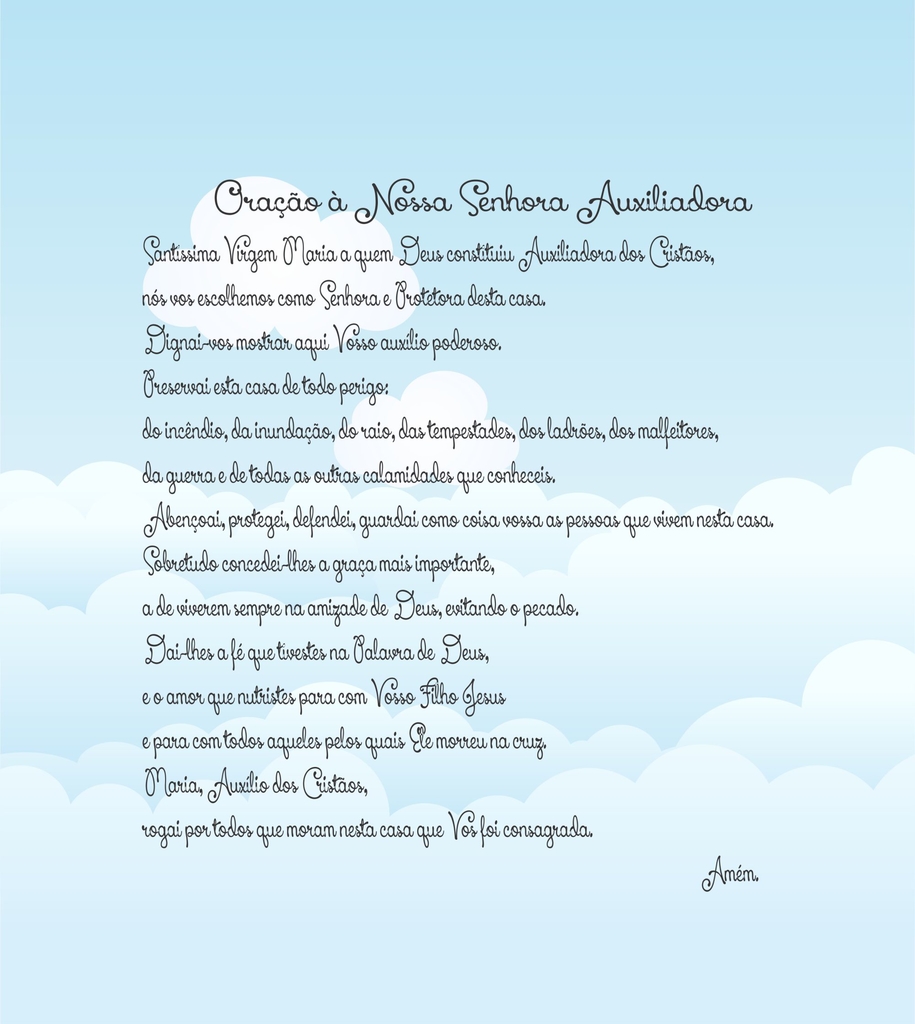 Oração à Nossa Senhora Auxiliadora
Santissima Virgem Maria a quem Deus constituiu Auxiliadora dos Cristãos,
nós vos escolhemos como Senhora e Protetora desta casa.
Dignai-vos mostrar aqui Vosso auxílio poderoso.
Preservai esta casa de todo perigo:
do incêndio, da inundação, do raio, das tempestades, dos ladrões, dos malfeitores,
da guerra e de todas as outras calamidades que conheceis.
Abençoai, protegei, defendei, guardai como coisa vossa as pessoas que vivem nesta casa.
Sobretudo concedei-lhes a graça mais importante,
a de viverem sempre na amizade de Deus, evitando o pecado.
Dai-lhes a fé que tivestes na Palavra de Deus,
e o amor que nutristes para com Vosso Filho Jesus
e para com todos aqueles pelos quais Ele morreu na cruz.
Maria, Auxílio dos Cristãos,
rogai por todos que moram nesta casa que Vos foi consagrada.
Amém.